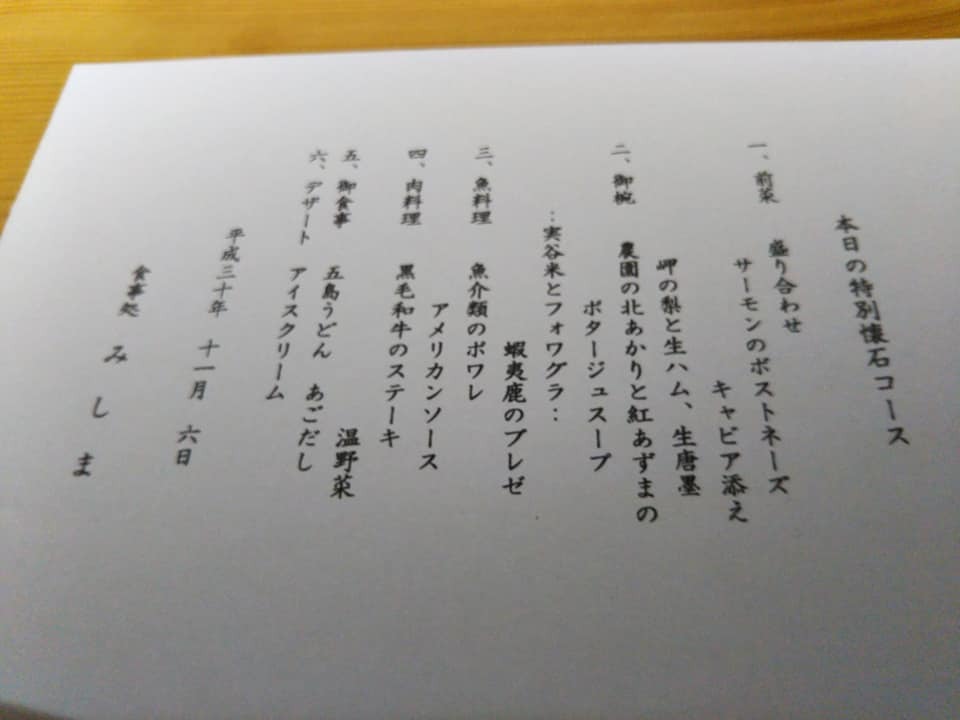 本日の特別懐石コース
一、前菜 盛り合わせ
サーモンのボストネーズ
キャビア添え
岬の梨と生ハム、生唐墨
二、御椀 農園の北あかりと紅あずまの
ポタージュスープ
‥実谷米とフォワグラ‥
蝦夷鹿のブレゼ
三、魚料理 魚介類のポワレ
アメリカンソース
四、肉料理 黒毛和牛のステーキ
温野菜
五、御食事 五島うどん あごだし
六、デザート アイスクリーム
平成三十年 十一月 六日
食事処 みしま